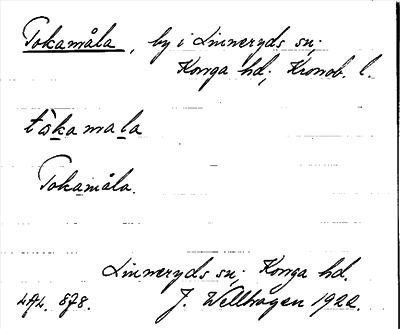 Tokamåla, by i Linneryds sn;
Konga hd; Kronob. l.
tòkamala
Tokamåla.
Linneryds sn; Konga hd.
J. Wellhagen 1922.